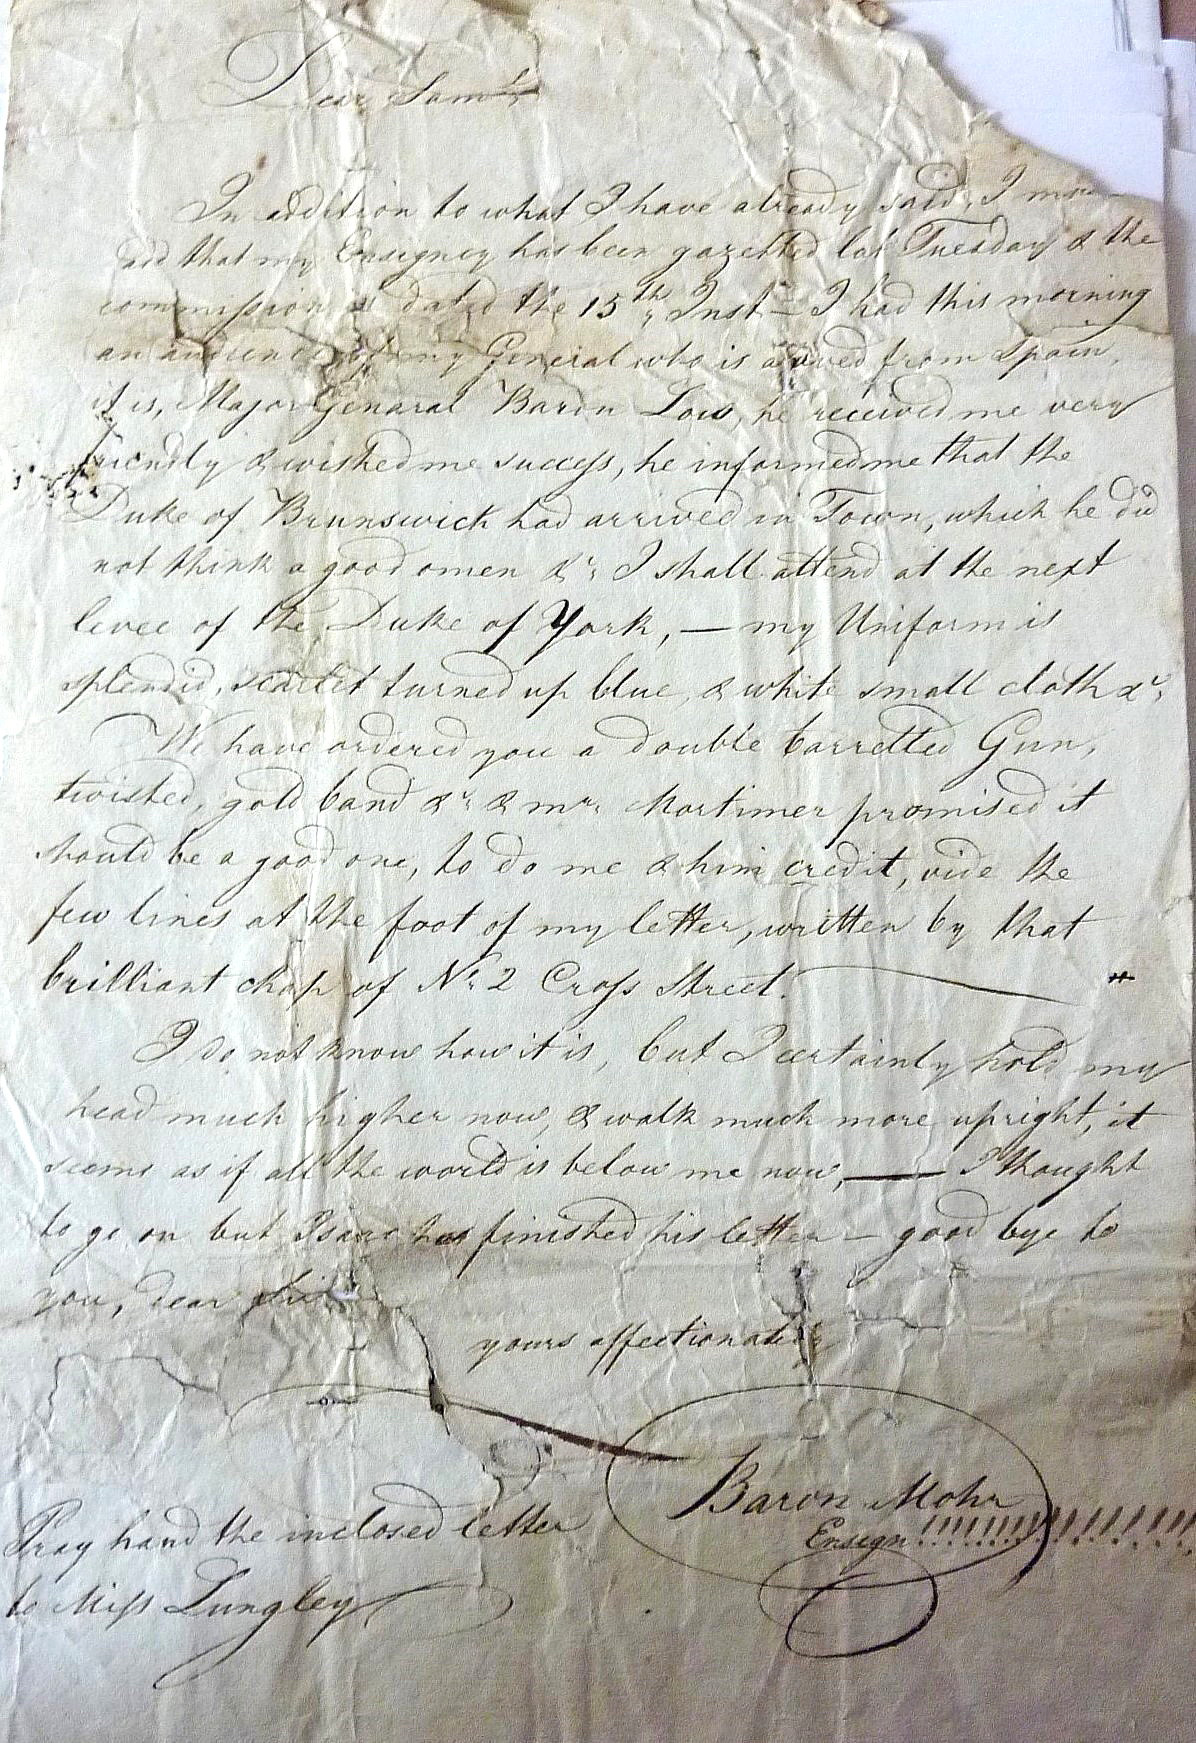 Dear Sam
In addition to what I have already said, I
add that my Ensigncy has been gazetted last Tuesday & the
commission is dated the 15th Inst – I had this morning
an audience of my General who is arrived from Spain
it is, Major General Baron Low, he received me very
friendly & wished me success, he informed me that the
Duke of Brunswick had arrived in Town, which he did
not think a good omen &c; I shall attend at the next
levee of the Duke of York, — my Uniform is
splendid, scarlet turned up blue & white small cloth &c;
We have ordered you a double barrelled Gun,
twisted, gold band &c & Mr. Mortimer promised it
should be a good one, to do me & him credit, vide the
few lines at the foot of my letter, written by that
brilliant chap of No. 2 Cross Street.
I do not know how it is, but I certainly hold my
head much higher now, & walk much more upright, it
seems as if all the world is below me now, — I thought
to go on but Isaac has finished his letter – good bye to
you, dear Sir
yours affectionately
Baron Mohr
Ensign !!!!!!!!!!!!!!!!
Pray hand the inclosed letter
to Miss Lungley